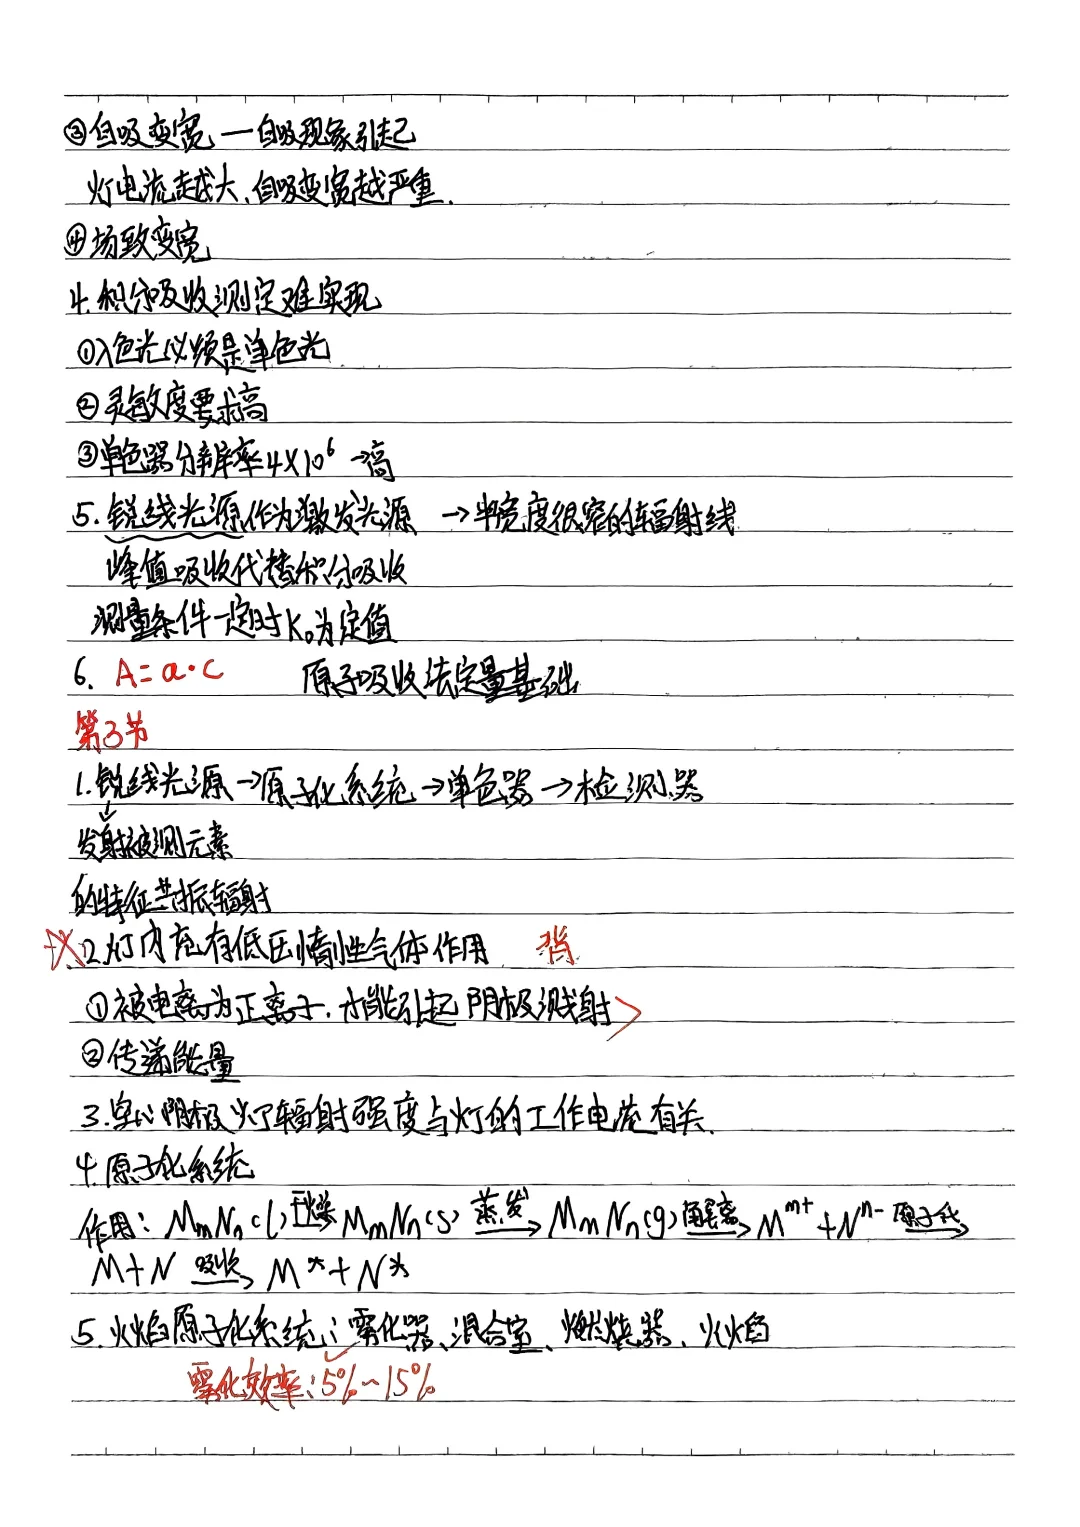 ③自吸变宽—自吸现象引起
灯电流越大、自吸变宽越严重.
④场致变宽
4.积分吸收测定难实现
①入色光必须是单色光
②灵敏度要求高
③单色器分辨率4×10⁶→高
5.锐线光源作为激发光源 →半宽度很窄的辐射线
峰值吸收代替积分吸收
测量条件一定时K₀为定值
6. A=a·C 原子吸收法定量基础
第3节
1.锐线光源→原子化系统→单色器→检测器
↓
发射被测元素
的特征共振辐射
☆2.灯内充有低压惰性气体作用 背
①被电离为正离子.才能引起阴极溅射
②传递能量
3.空心阴极灯辐射强度与灯的工作电流有关.
4.原子化系统
作用: MmNn(l) 干燥→ MmNn(s) 蒸发→ MmNn(g) 解离→ Mᵐ⁺+Nⁿ⁻ 原子化→
M+N 吸收→ M*+N*
5.火焰原子化系统:雾化器、混合室、燃烧器、火焰
雾化效率:5%~15%